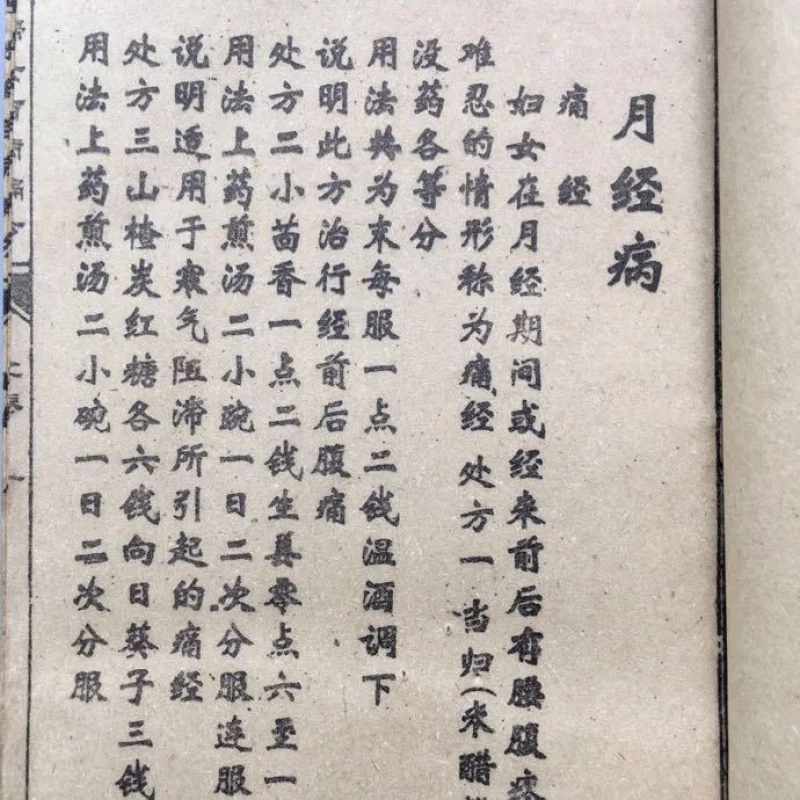 月经病
痛经
妇女在月经期间或经来前后有腰腹疼
难忍的情形称为痛经 处方一 当归(米醋
没药各等分
用法共为末每服一点二钱温酒调下
说明此方治行经前后腹痛
处方二小茴香一点二钱生姜零点六至一
用法上药煎汤二小碗一日二次分服连服
说明适用于寒气阻滞所引起的痛经
处方三山楂炭红糖各六钱向日葵子三钱
用法上药煎汤二小碗一日二次分服